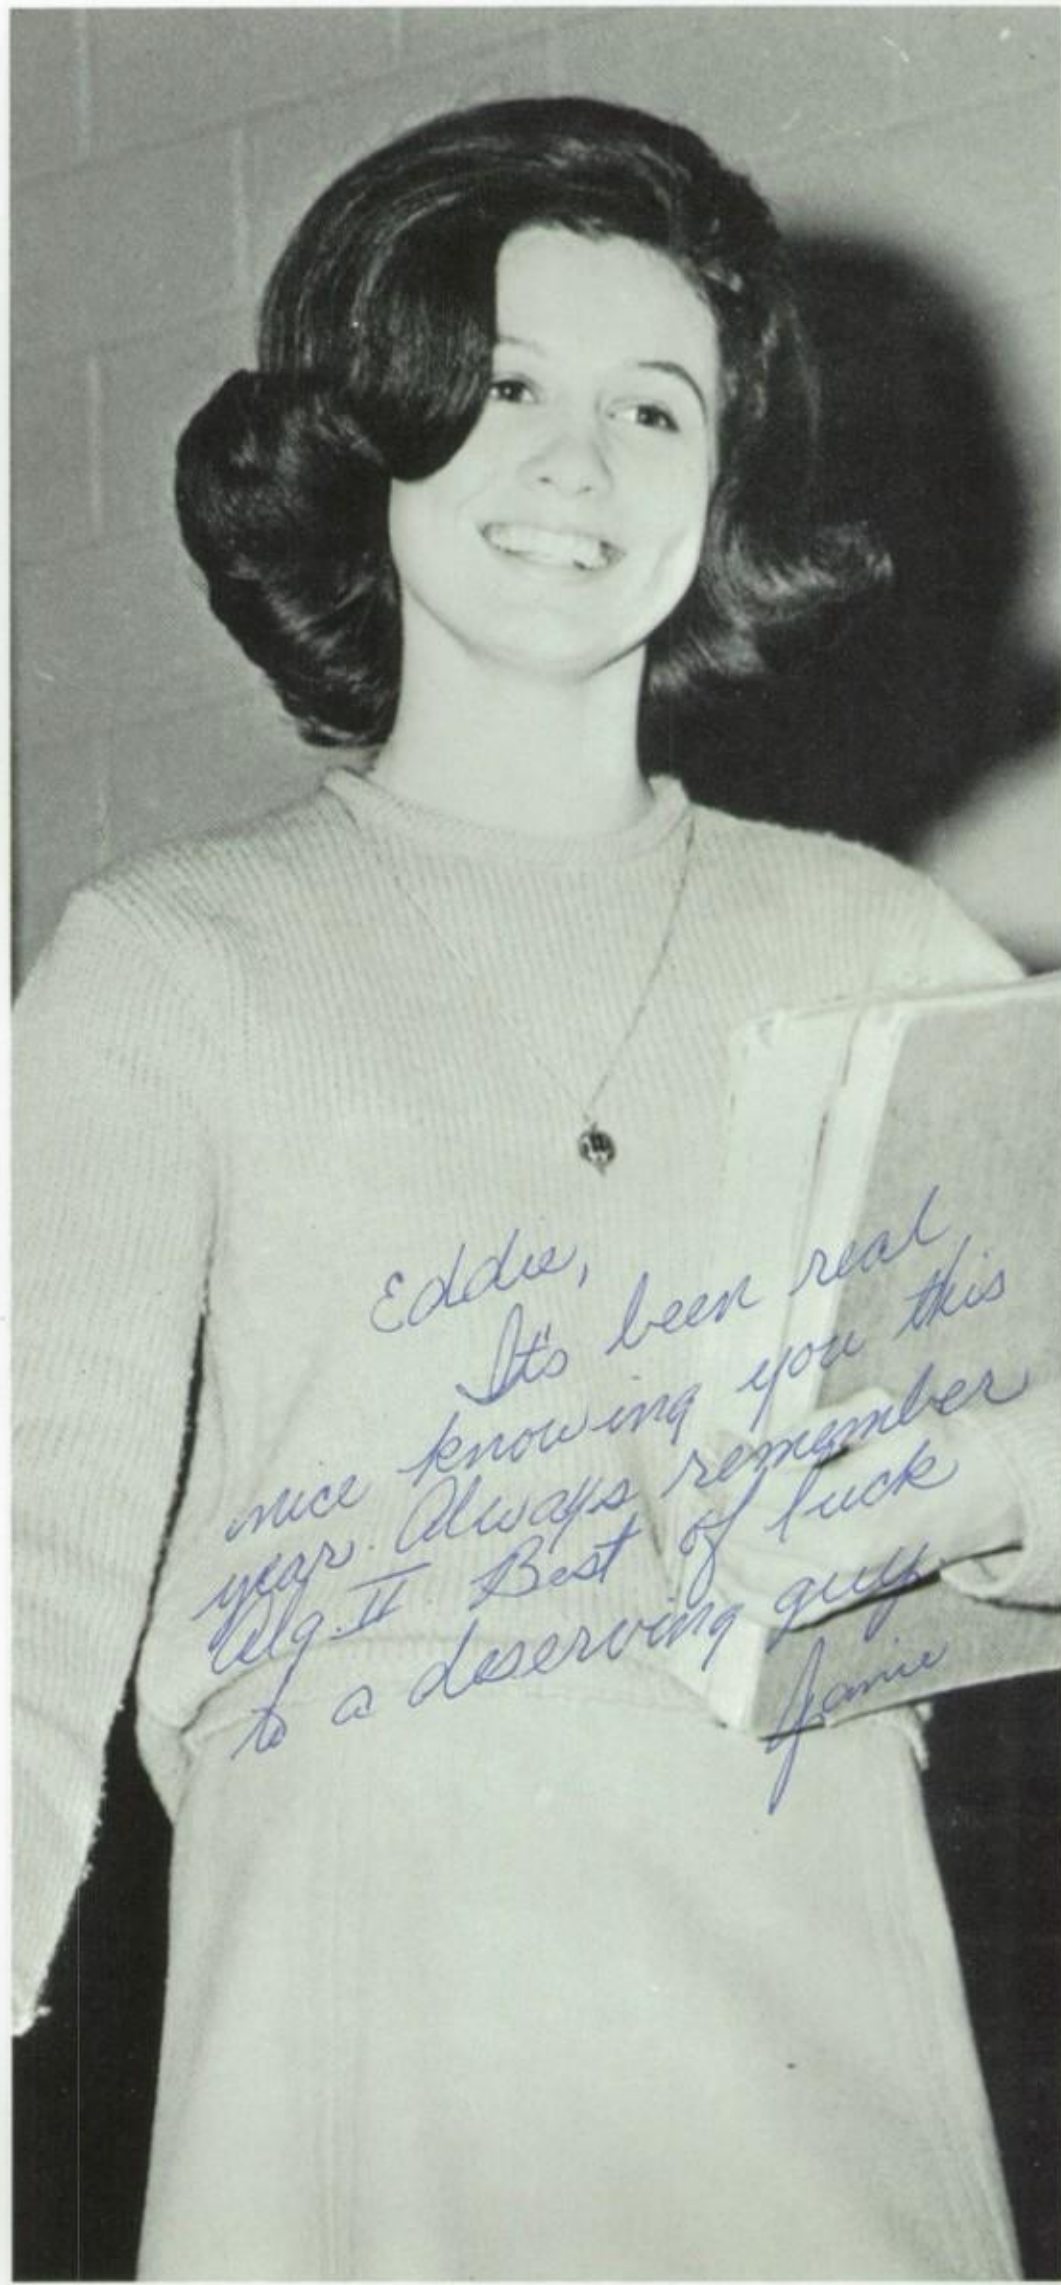 Eddie,
It's been real
nice knowing you this
year. Always remember
Alg. II. Best of luck
to a deserving guy.
Janie